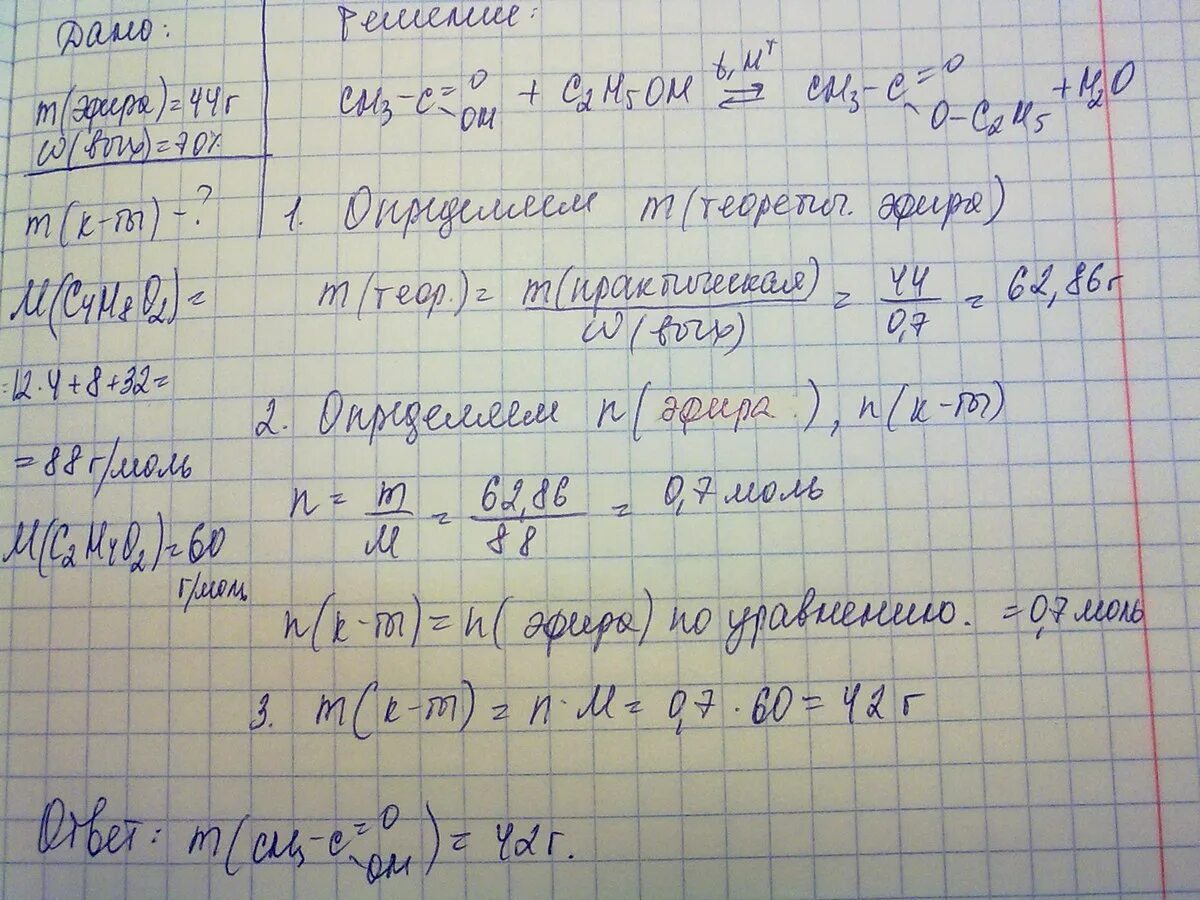 Дано:
m(эфира)=44г
ω(вых)=70%
m(к-ты)-?
M(C4H8O2)=
=12·4+8+32=
=88г/моль
M(C2H4O2)=60
г/моль
Решение:
CH3-C=O OH + C2H5OH t, H+ ⇌ CH3-C=O O-C2H5 + H2O
1. Определяем m(теоретич. эфира)
m(теор.)= m(практическая) / ω(вых) = 44 / 0,7 = 62,86г
2. Определяем n(эфира), n(к-ты)
n = m / M = 62,86 / 88 = 0,7 моль
n(к-ты)=n(эфира) по уравнению. =0,7 моль
3. m(к-ты)=n·M=0,7·60=42 г
Ответ: m(CH3-C=O OH)=42г.